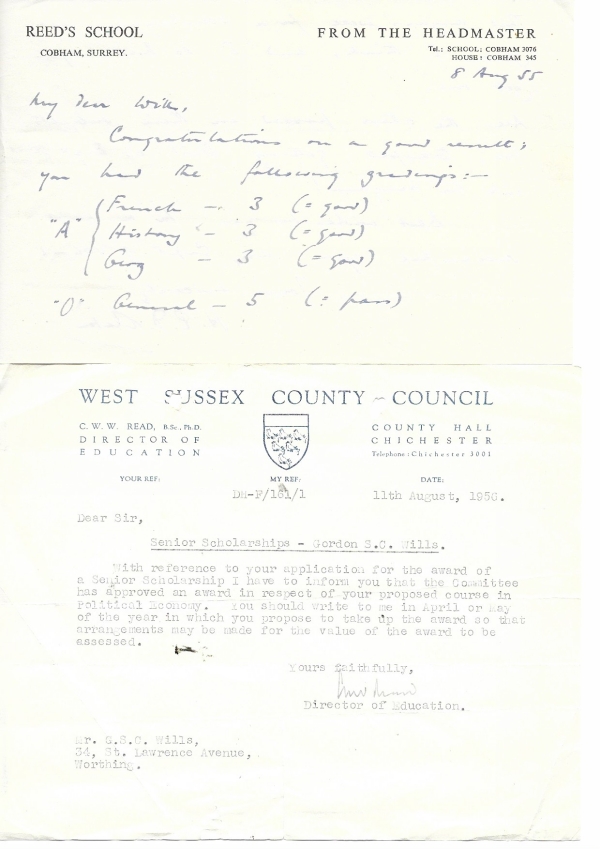 REED'S SCHOOL
COBHAM, SURREY.
FROM THE HEADMASTER
Tel.: SCHOOL: COBHAM 3076
HOUSE: COBHAM 345
8 Aug 55
My dear Wills,
Congratulations on a good result;
you had the following gradings:—
"A" { French — 3 (= good)
History — 3 (= good)
Geog — 3 (= good)
"O" General — 5 (= pass)
WEST SUSSEX COUNTY COUNCIL
C. W. W. READ, B.Sc., Ph.D.
DIRECTOR OF
EDUCATION
COUNTY HALL
CHICHESTER
Telephone: Chichester 3001
YOUR REF: MY REF: DATE:
DM-F/161/1 11th August, 1956.
Dear Sir,
Senior Scholarships - Gordon S.C. Wills.
With reference to your application for the award of
a Senior Scholarship I have to inform you that the Committee
has approved an award in respect of your proposed course in
Political Economy. You should write to me in April or May
of the year in which you propose to take up the award so that
arrangements may be made for the value of the award to be
assessed.
Yours faithfully,
Director of Education.
Mr. G.S.C. Wills,
34, St. Lawrence Avenue,
Worthing.